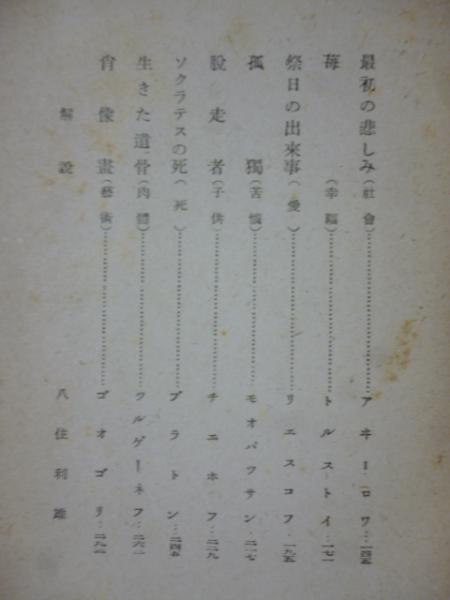 最初の悲しみ(社會)……アヰーロワ…一四五
苺(幸福)……トルストイ…一七一
祭日の出來事(愛)……リエスコフ…一九五
孤獨(苦惱)……モオパツサン…二一七
脫走者(子供)……チエホフ…二二九
ソクラテスの死(死)……プラトン…二四五
生きた遺骨(肉體)……ツルゲーネフ…二六一
肖像畫(藝術)……ゴオゴリ…二九一
解說 八住利雄